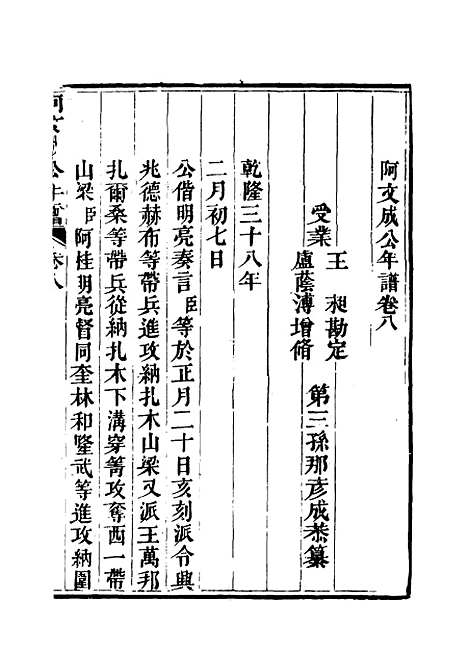 阿文成公年譜卷八
第三孫那彥成恭纂
受業 王 昶勘定
盧蔭溥增修
乾隆三十八年
二月初七日
公偕明亮奏言臣等於正月二十日亥刻派令興
兆德赫布等帶兵進攻納扎木山梁又派王萬邦
扎爾桑等帶兵從納扎木下溝穿箐攻奪西一帶
山梁臣阿桂明亮督同奎林和隆武等進攻納圍
阿文成公年譜 卷八